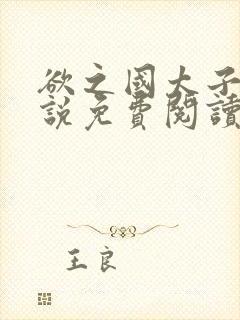 欲之國大子
說免費閱讀
王良